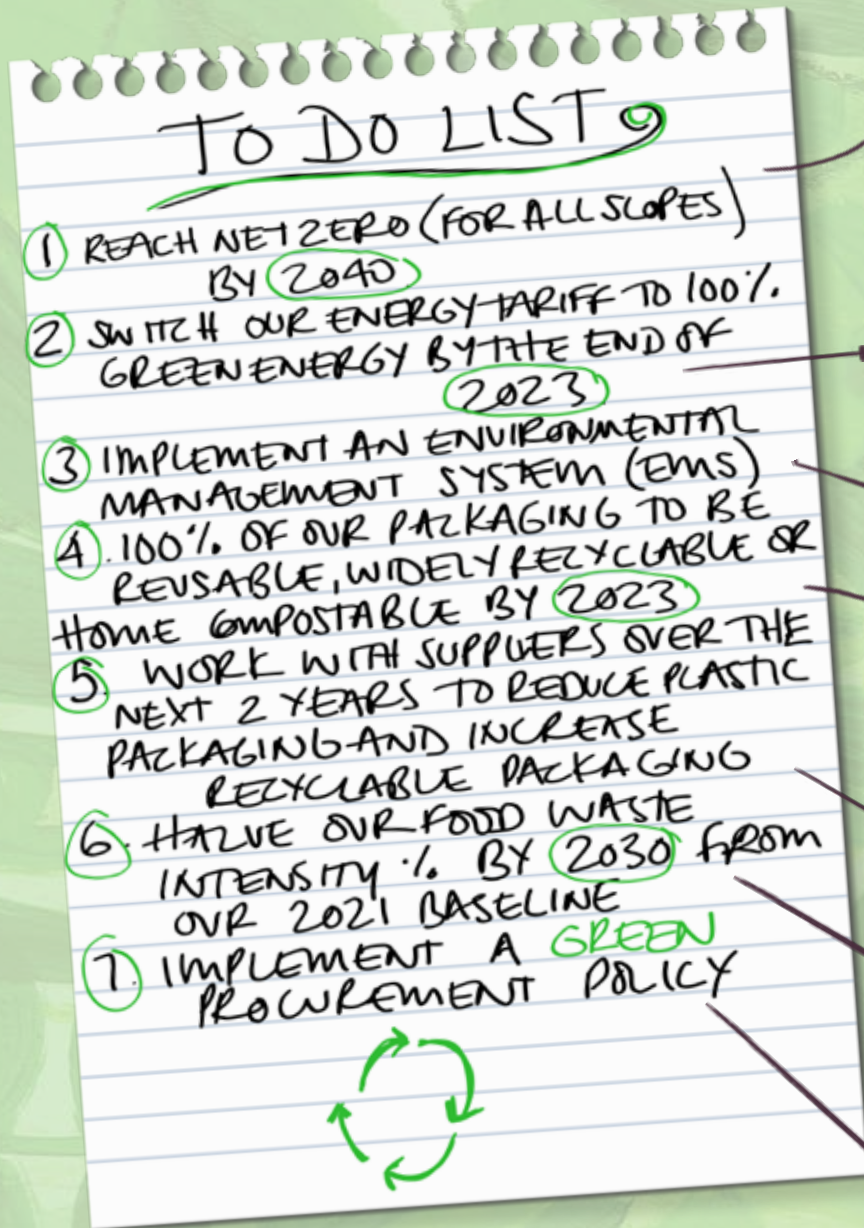 TO DO LIST
1 REACH NET ZERO (FOR ALL SCOPES)
BY 2040
2 SWITCH OUR ENERGY TARIFF TO 100%
GREEN ENERGY BY THE END OF
2023
3 IMPLEMENT AN ENVIRONMENTAL
MANAGEMENT SYSTEM (EMS)
4. 100% OF OUR PACKAGING TO BE
REUSABLE, WIDELY RECYCLABLE OR
HOME COMPOSTABLE BY 2023
5. WORK WITH SUPPLIERS OVER THE
NEXT 2 YEARS TO REDUCE PLASTIC
PACKAGING AND INCREASE
RECYCLABLE PACKAGING
6. HALVE OUR FOOD WASTE
INTENSITY % BY 2030 FROM
OUR 2021 BASELINE
7. IMPLEMENT A GREEN
PROCUREMENT POLICY